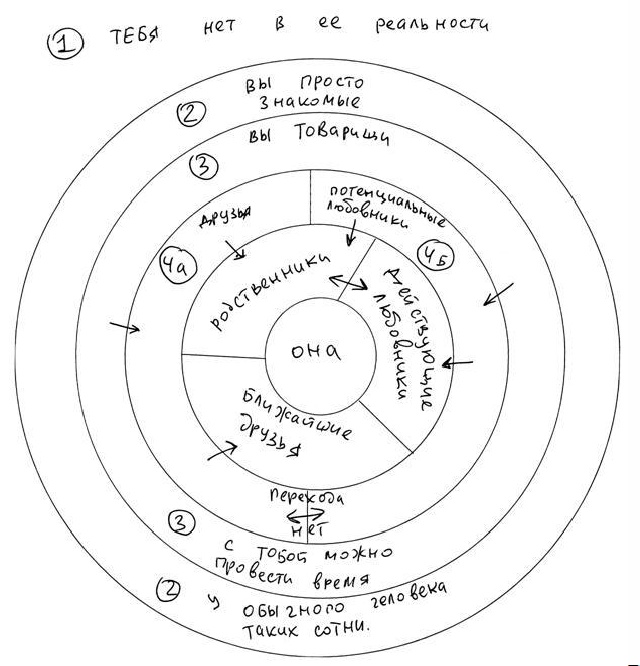 1 ТЕБЯ нет в ее реальности
2 вы просто
знакомые
3 вы товарищи
друзья
потенциальные
любовники
4а
4б
родственники
действующие
любовники
она
ближайшие
друзья
перехода
нет
3 с тобой можно
провести время
2 у обычного человека
таких сотни.